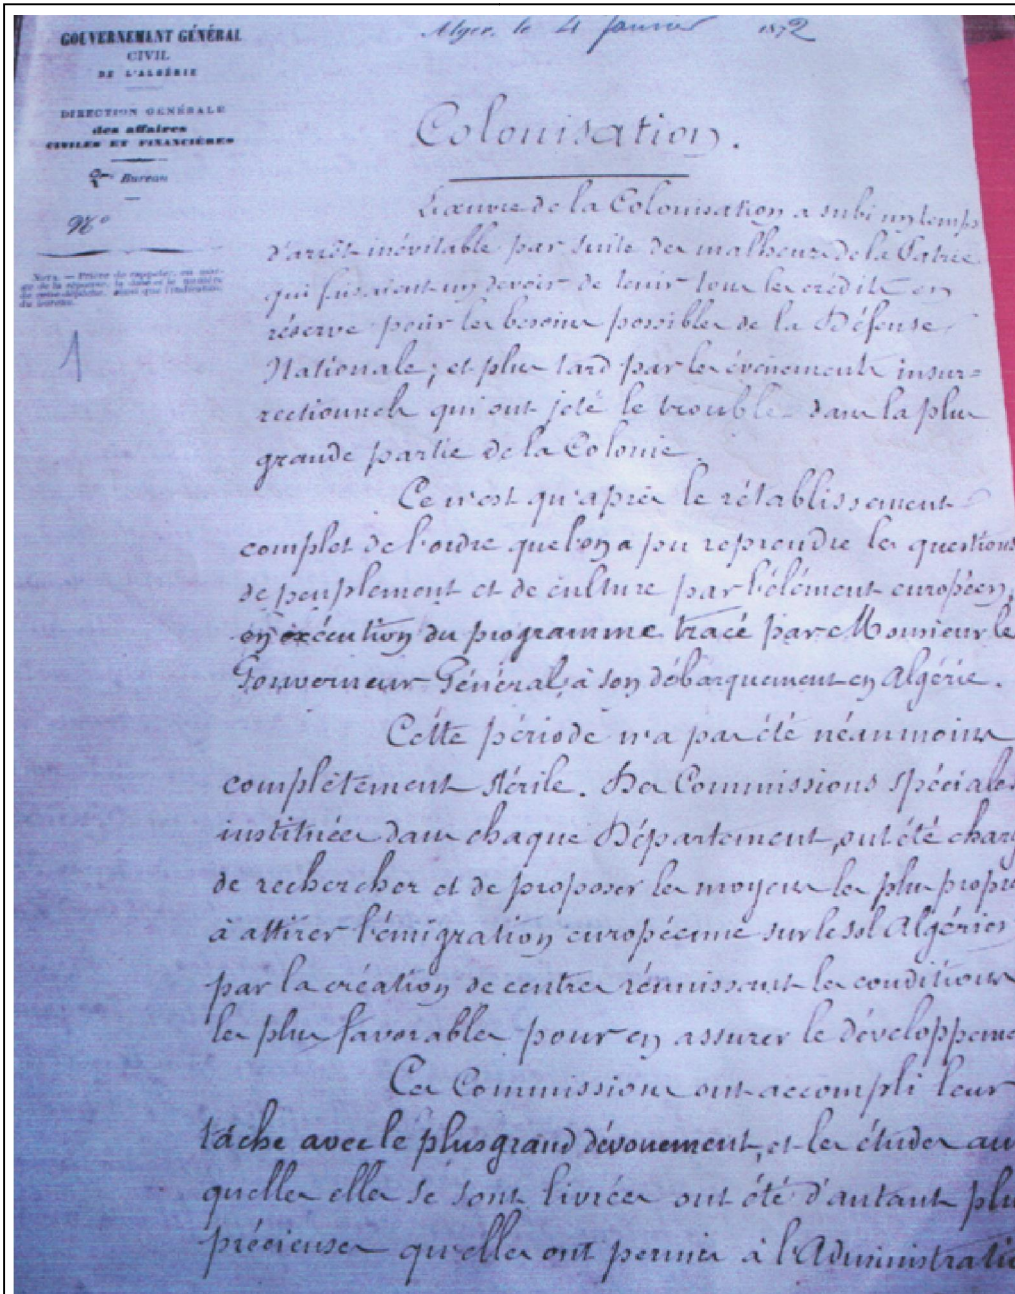 GOUVERNEMENT GÉNÉRAL
CIVIL
DE L'ALGÉRIE
DIRECTION GÉNÉRALE
des affaires
CIVILES ET FINANCIÈRES
Bureau
N°
Nota. — Prière de rappeler, en mar-
ge de la réponse, la date et le numéro
de cette dépêche, ainsi que l'indication
du bureau.
1
Alger, le 4 Janvier 1872
Colonisation.
L'œuvre de la Colonisation a subi un temps
d'arrêt inévitable par suite des malheurs de la Patrie
qui faisaient un devoir de tenir tous les crédits en
réserve pour les besoins possibles de la Défense
Nationale ; et plus tard par les événements insur-
rectionnels qui ont jeté le trouble dans la plus
grande partie de la Colonie.
Ce n'est qu'après le rétablissement
complet de l'ordre que l'on a pu reprendre les questions
de peuplement et de culture par l'élément européen,
en exécution du programme tracé par Monsieur le
Gouverneur Général, à son débarquement en Algérie.
Cette période n'a pas été néanmoins
complètement stérile. Des Commissions spéciales
instituées dans chaque Département, ont été charg
de rechercher et de proposer les moyens les plus propre
à attirer l'émigration européenne sur le sol Algérien
par la création de centres réunissant les conditions
les plus favorables pour en assurer le développeme
Ces Commissions ont accompli leur
tâche avec le plus grand dévouement, et les études aux
quelles elles se sont livrées ont été d'autant plu
précieuses qu'elles ont permis à l'Administratio